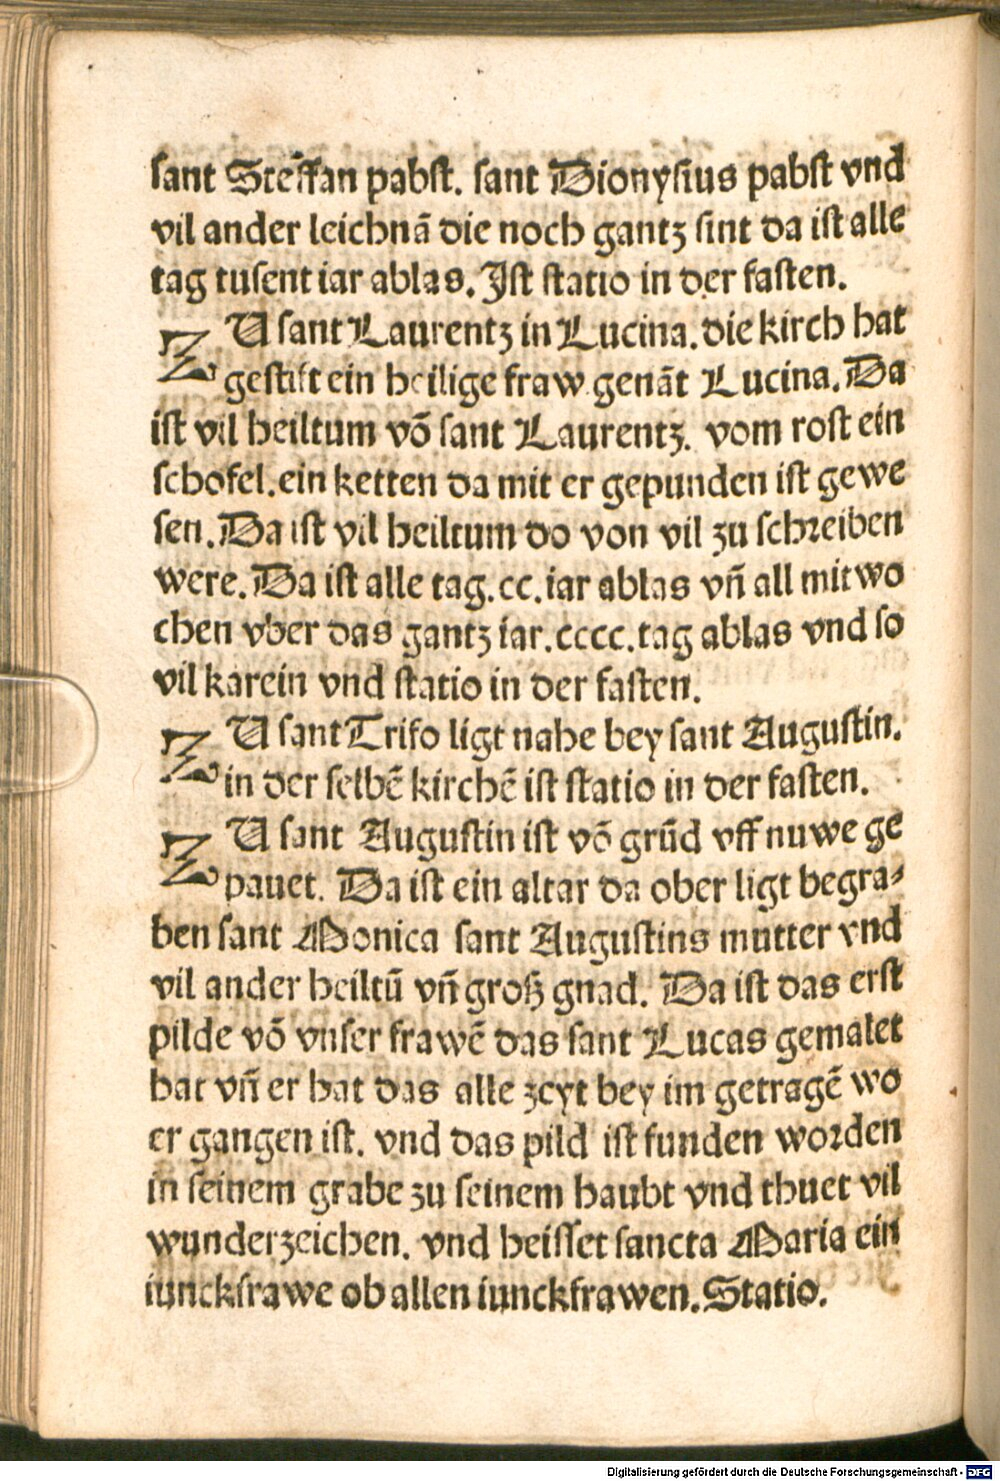 sant Steffan pabst. sant Dionysius pabst vnd
vil ander leichnā die noch gantz sint da ist alle
tag tusent iar ablas. Ist statio in der fasten.
ZU sant Laurentz in Lucina. die kirch hat
gestift ein heilige fraw genāt Lucina. Da
ist vil heiltum vō sant Laurentz. vom rost ein
schofel. ein ketten da mit er gepunden ist gewe
sen. Da ist vil heiltum do von vil zu schreiben
were. Da ist alle tag. cc. iar ablas vn̄ all mitwo
chen vber das gantz iar. cccc. tag ablas vnd so
vil karein vnd statio in der fasten.
ZU sant Trifo ligt nahe bey sant Augustin.
in der selbē kirchē ist statio in der fasten.
ZU sant Augustin ist vō grūd vff nuwe ge
pauet. Da ist ein altar da ober ligt begra⸗
ben sant Monica sant Augustins mutter vnd
vil ander heiltū vn̄ groß gnad. Da ist das erst
pilde vō vnser frawē das sant Lucas gemalet
hat vn̄ er hat das alle zcyt bey im getragē wo
er gangen ist. vnd das pild ist funden worden
in seinem grabe zu seinem haubt vnd thuet vil
wunderzeichen. vnd heisset sancta Maria ein
iunckfrawe ob allen iunckfrawen. Statio.
Digitalisierung gefördert durch die Deutsche Forschungsgemeinschaft - DFG